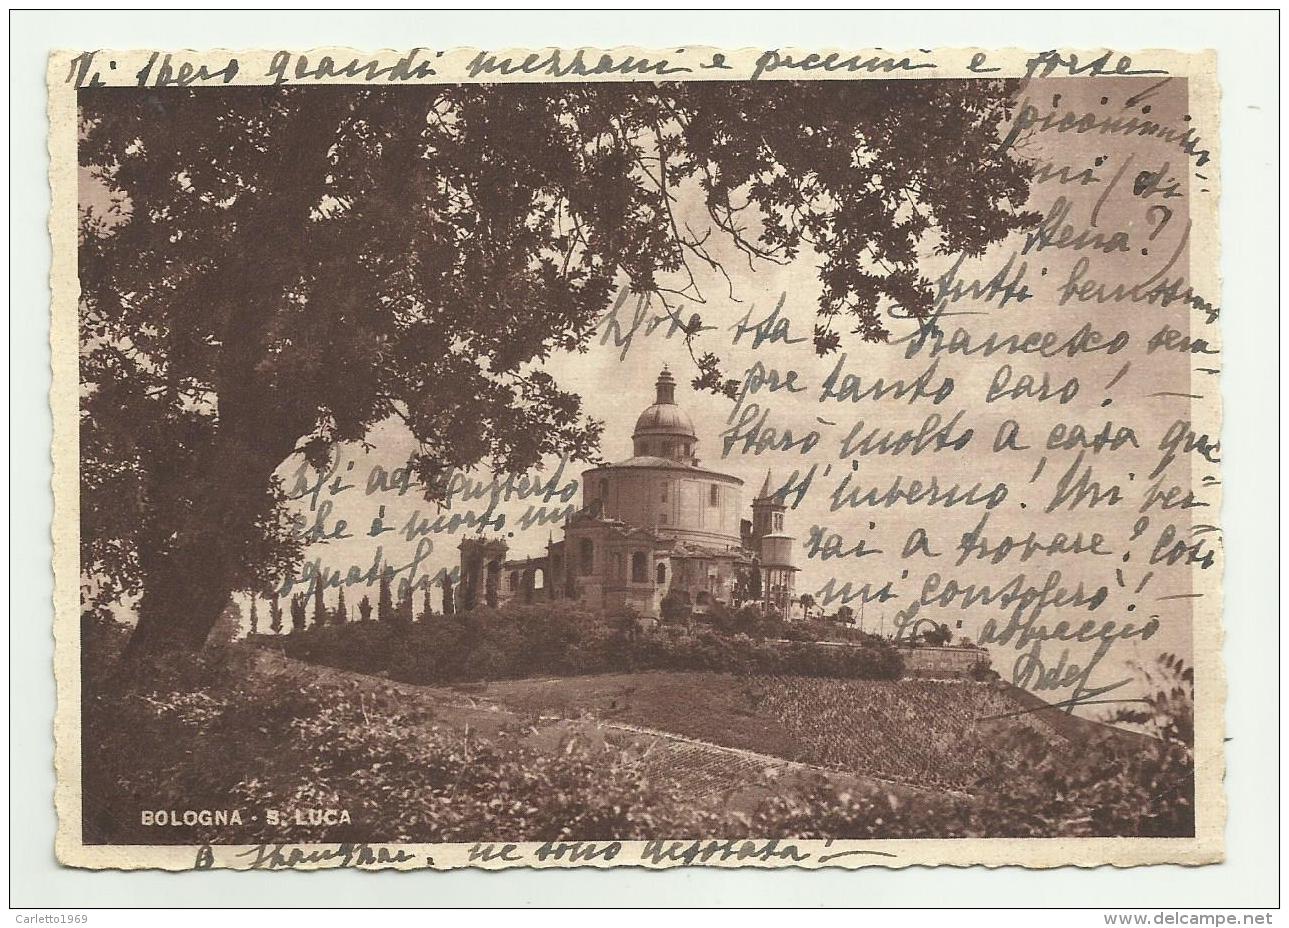 Vi spero grandi mezzani e piccini e forse
piccinissi-
mi (di
Stena?)
tutti benissimo
Dora sta Francesco sem-
pre tanto caro! —
Starò molto a casa que-
st'inverno! Mi ver-
rai a trovare? Così
mi consolerò! —
Vi abbraccio
Adel
Di ad Umberto
che è morto mio
cognato
a Shanghai. ne sono desolata! —
BOLOGNA · S. LUCA
Carletto1969
www.delcampe.net